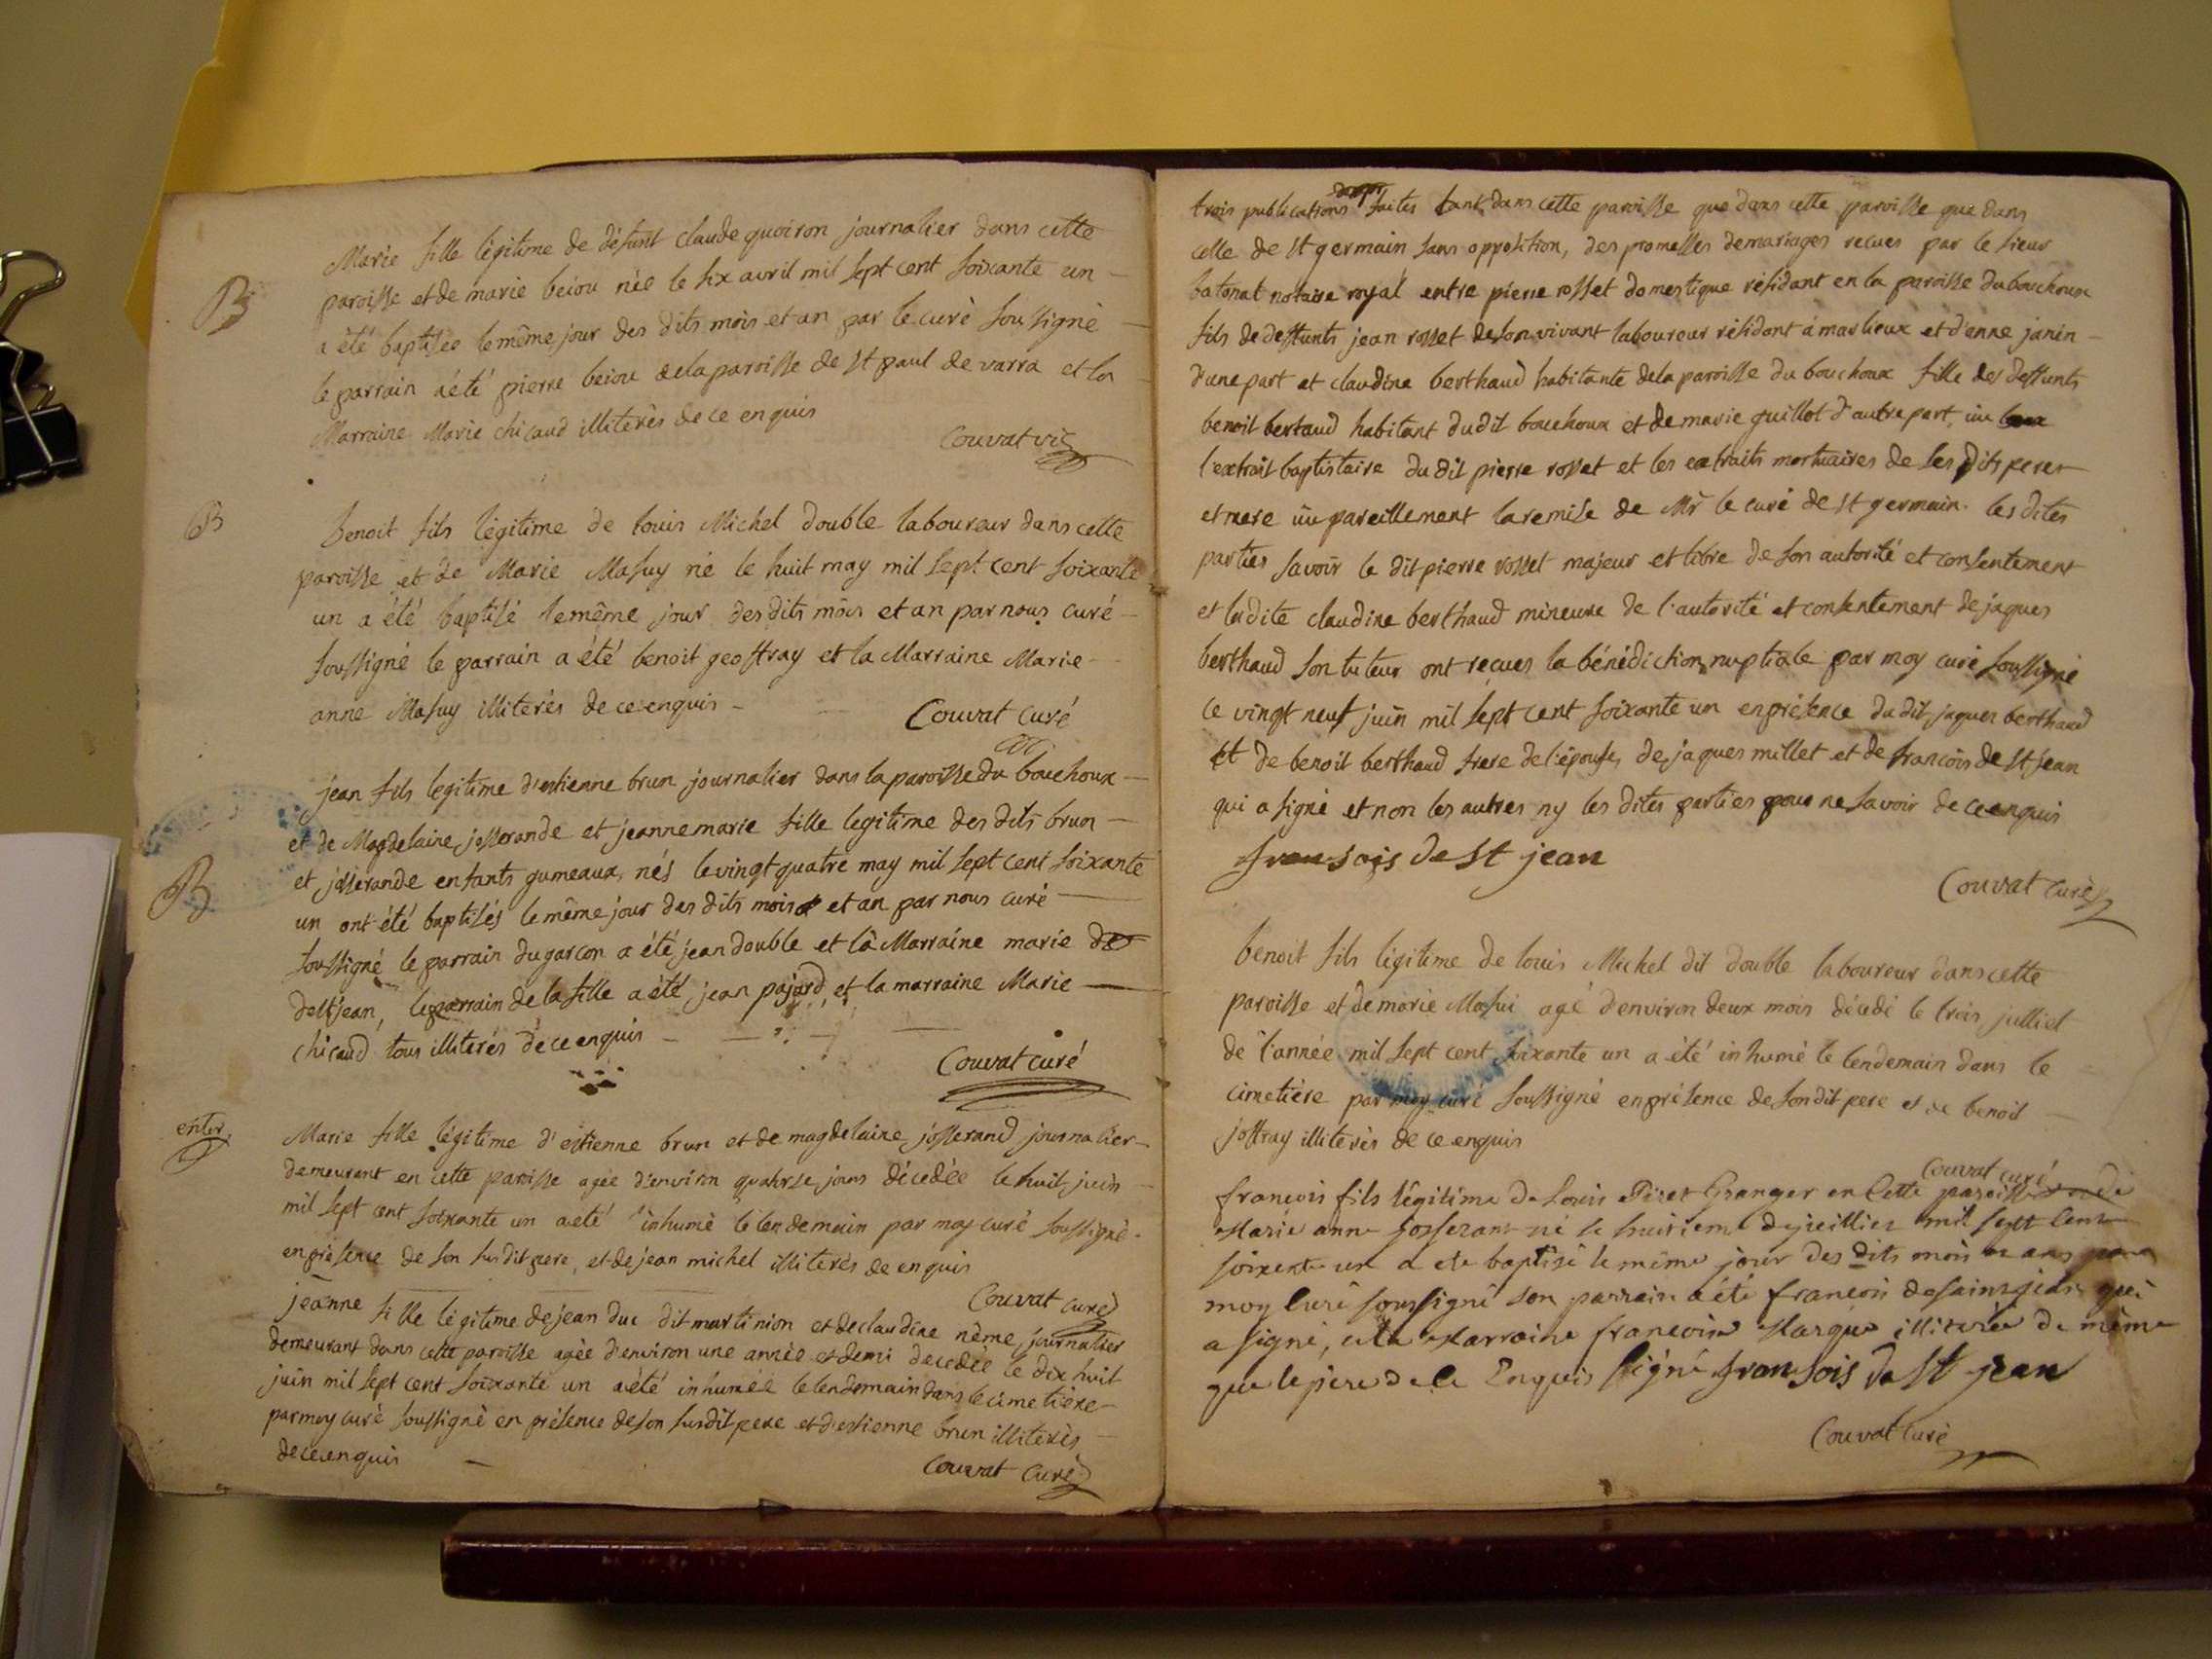 Marie fille légitime de défunt claude quoiron journalier dans cette
B
paroisse et de marie beiou née le six avril mil sept cent soixante un
a été baptisée le même jour des dits mois et an par le curé soussigné
le parrain a été pierre beiou de la paroisse de st paul de varra et la
Marraine Marie chicaud illiterés de ce enquis
Couvat vic
B
benoit fils légitime de louis Michel double laboureur dans cette
paroisse et de Marie Masuy né le huit may mil sept cent soixante
un a été baptisé le même jour des dits mois et an par nous curé
soussigné le parrain a été benoit geoffray et la Marraine Marie
anne Masuy illiterés de ce enquis
Couvat curé
jean fils legitime d'estienne brun journalier dans la paroisse du bouchoux
et de Magdelaine josserande et jeanne marie fille legitime des dits brun
B
et josserande enfants gumeaux, nés le vingt quatre may mil sept cent soixante
un ont été baptisés le même jour des dits mois et an par nous curé
soussigné le parrain du garcon a été jean double et la Marraine marie de
de st jean, le parrain de la fille a été jean pajard, et la marraine Marie
chicaud tous illiterés de ce enquis
Couvat curé
enter.
Marie fille légitime d'estienne brun et de magdelaine josserand journalier
demeurant en cette paroisse agée d'environ quatorse jours décedée le huit juin
mil sept cent soixante un a eté inhumé le lendemain par moy curé soussigné
en présence de son susdit pere, et de jean michel illiterés de enquis
Couvat curé
jeanne fille légitime de jean duc dit martinion et de claudine nême journalier
demeurant dans cette paroisse agée d'environ une année et demi decedée le dix huit
juin mil sept cent soixante un a été inhumée le lendemain dans le cimetière
par moy curé soussigné en présence de son susdit pere et d'estienne brun illiterés
de ce enquis
Couvat Curé
trois publications faites tant dans cette paroisse que dans cette paroisse que dans
celle de st germain sans opposition, des promesses de mariages recues par le sieur
batonat notaire royal entre pierre rosset domestique résidant en la paroisse du bouchoux
fils de deffunts jean rosset de son vivant laboureur résidant à marlieux et d'enne janin
d'une part et claudine berthaud habitante de la paroisse du bouchoux fille des deffunts
benoit bertaud habitant du dit bouchoux et de marie guillot d'autre part, vu
l'extrait baptistaire du dit pierre rosset et les extraits mortuaires de ses dits peres
et mere vu pareillement la remise de Mr le curé de st germain. les dites
parties savoir le dit pierre rosset majeur et libre de son autorité et consentement
et la dite claudine berthaud mineure de l'autorité et consentement de jaques
berthaud son tuteur ont reçues la bénédiction nuptiale par moy curé soussigné
ce vingt neuf juin mil sept cent soixante un en présence du dit jaques berthaud
et de benoit berthaud frere de l'épouse, de jaques millet et de francois de st jean
qui a signé et non les autres ny les dites parties pour ne savoir de ce enquis
fransois de st jean
Couvat curé
benoit fils légitime de louis Michel dit double laboureur dans cette
paroisse et de marie Masui agé d'environ deux mois décedé le trois julliet
de l'année mil sept cent soixante un a été inhumé le lendemain dans le
cimetière par moy curé soussigné en présence de son dit pere et de benoit
joffray illiterés de ce enquis
Couvat curé
francois fils légitime de Louis Piret Granger en Cette paroisse de
Marie anne josserant né le huitieme de jeuillier mil sept cent
soixente un a ete baptisé le même jour des dits mois et ans par
moy curé soussigné son parrain a été francois de saint jean qui
a signé, et la Marraine francoise Marque illiterée de même
que le pere de ce Enquis signé fransois de st jean
Couvat curé